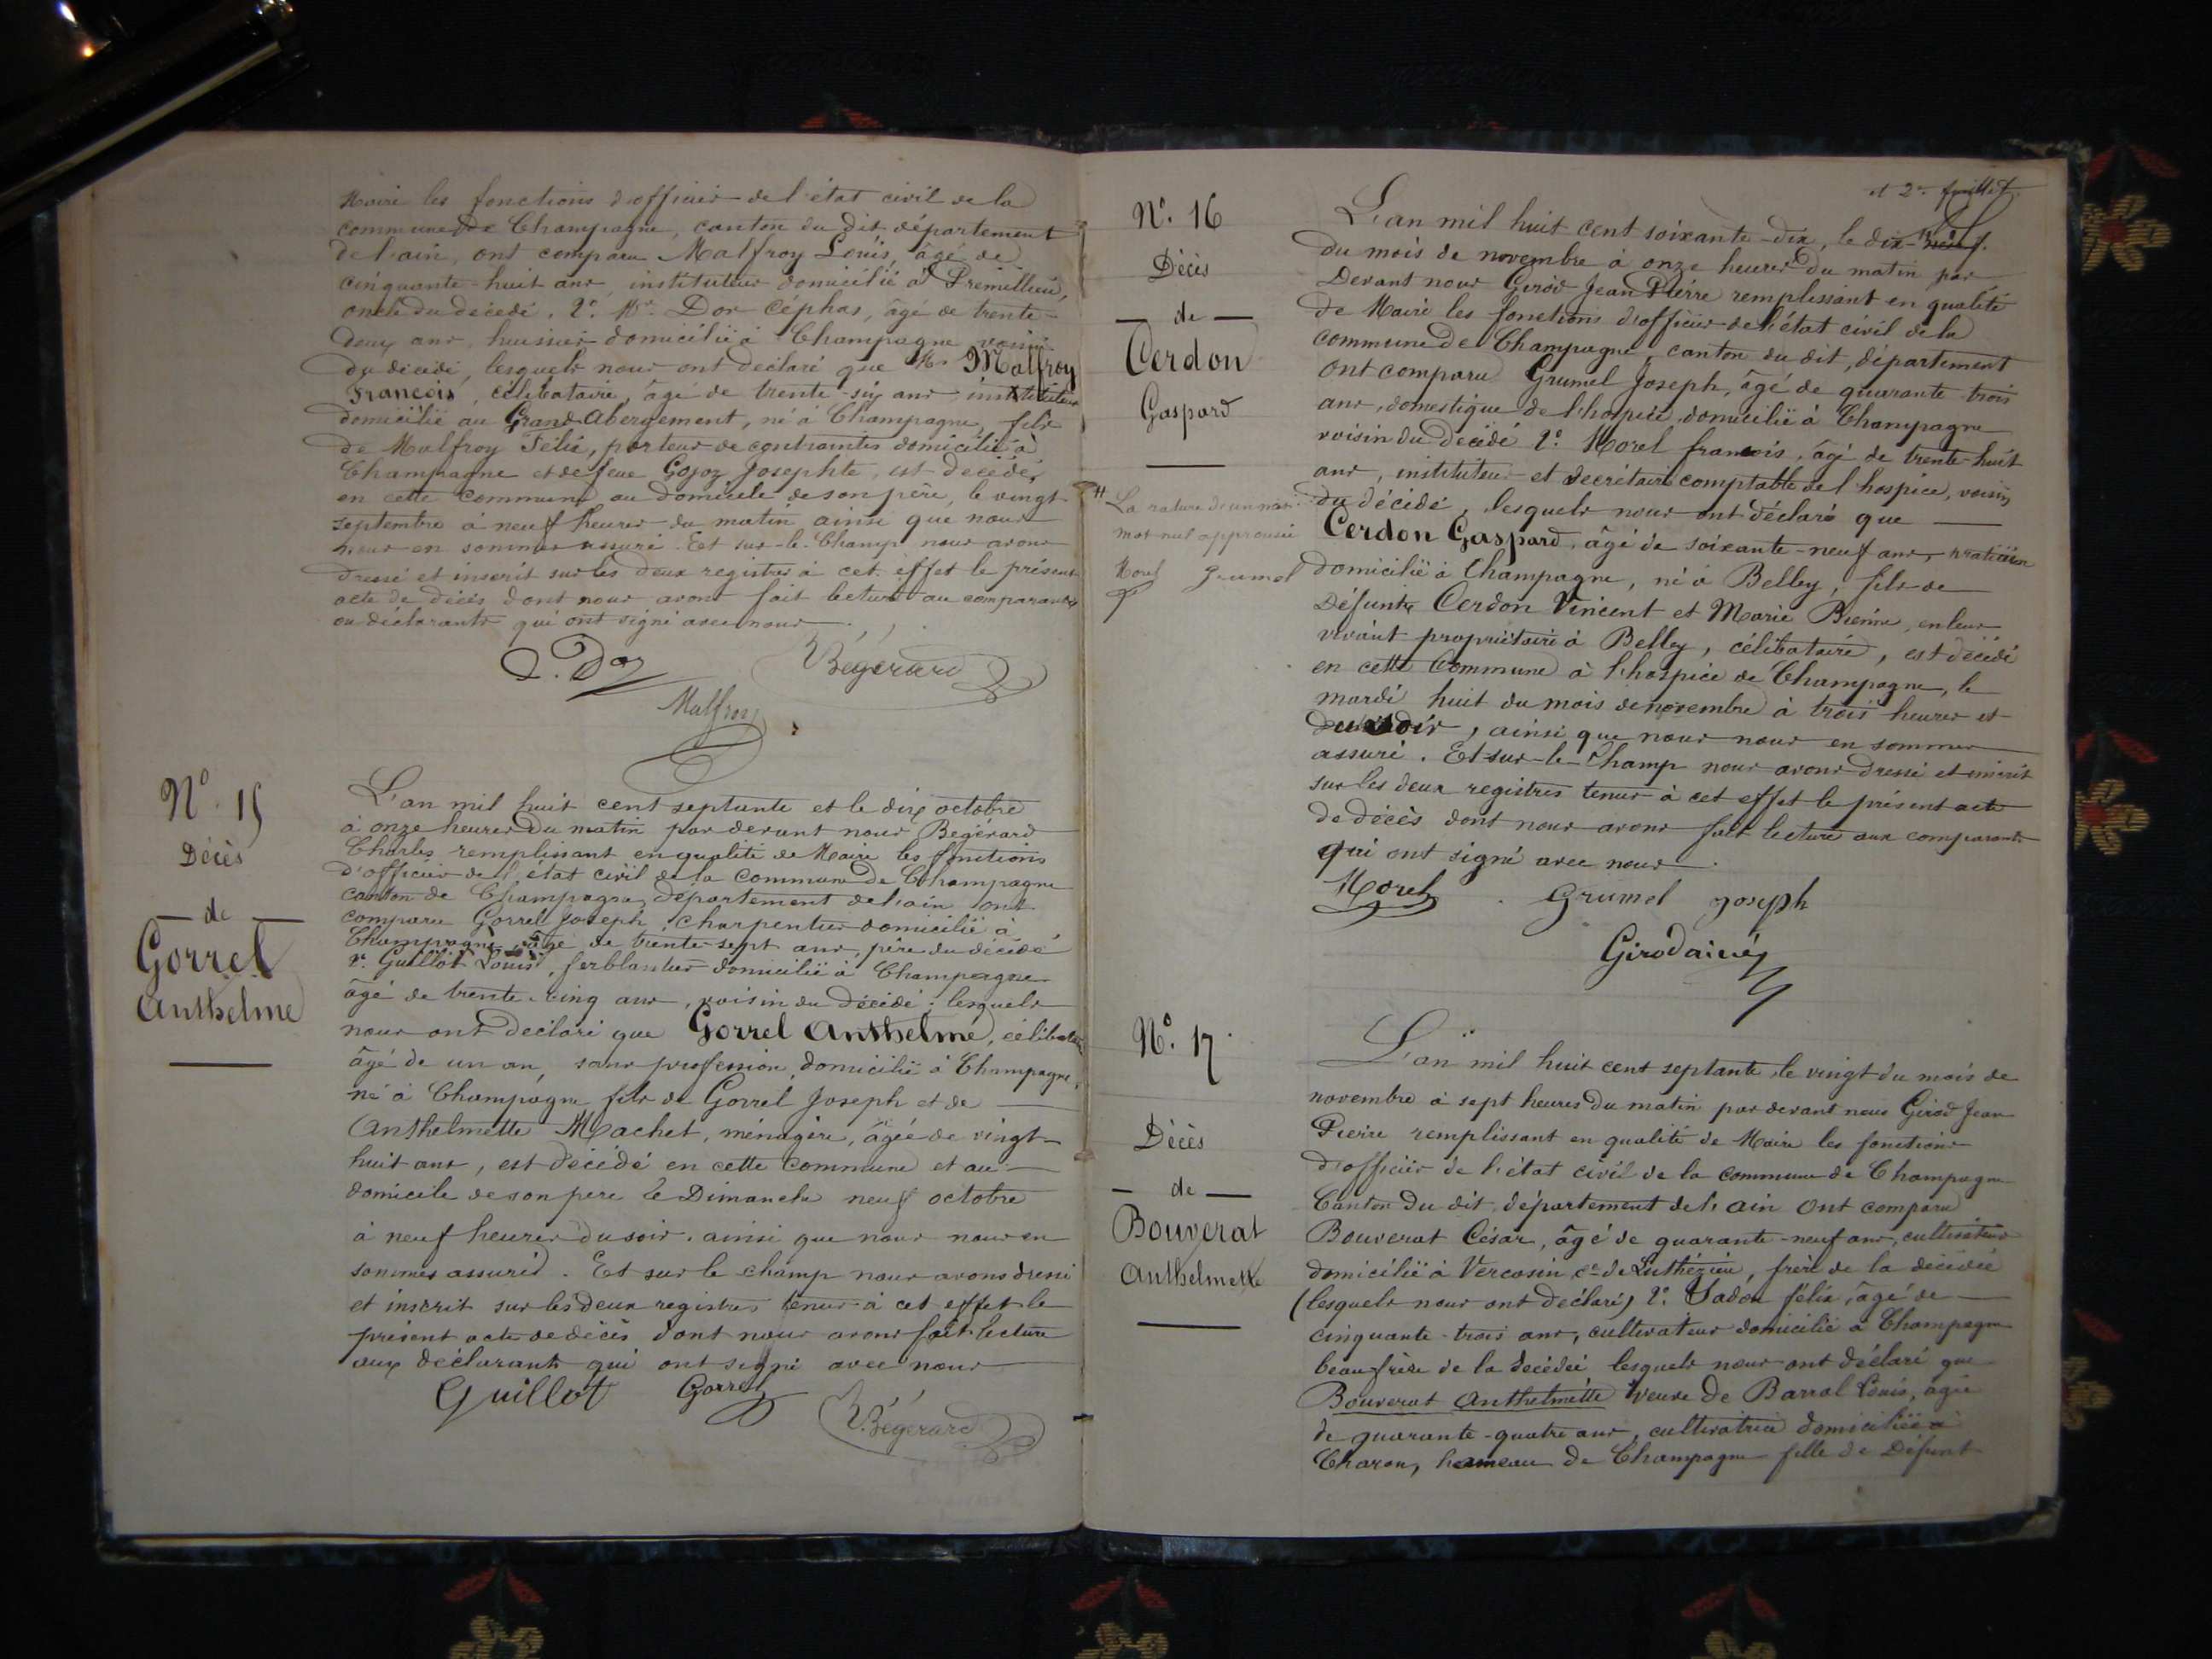 Maire les fonctions d'officier de l'état civil de la
commune de Champagne, canton du dit département
de l'ain, ont comparu Malfroy Louis, âgé de
cinquante-huit ans, instituteur domicilié à Premillieu,
oncle du décédé, 2º. Mr. Dor Céphas, âgé de trente-
deux ans, huissier domicilié à Champagne voisin
du décédé, lesquels nous ont déclaré que Mr Malfroy
François, célibataire, âgé de trente-six ans instituteur
domicilié au Grand Abergement, né à Champagne, fils
de Malfroy Félix, porteur de contraintes domicilié à
Champagne et de feue Gojoz Josephte, est décédé,
en cette commune au domicile de son père, le vingt
septembre à neuf heures du matin ainsi que nous
nous en sommes assuré. Et sur-le-Champ nous avons
dressé et inscrit sur les deux registres à cet effet le présent
acte de décès dont nous avons fait lecture au comparants
ou déclarants qui ont signé avec nous.
C. Dor
Bégérard
Malfroy
Nº. 15
Décès
de
Gorrel
Anthelme
L'an mil huit cent septante et le dix octobre
à onze heures du matin par devant nous Bégérard
Charles remplissant en qualité de Maire les fonctions
d'officier de l'état civil de la Commune de Champagne
canton de Champagne, département de l'ain ont
comparu Gorrel Joseph, charpentier domicilié à
Champagne, âgé de trente-sept ans, père du décédé
2º. Guillot Louis, ferblantier domicilié à Champagne
âgé de trente-cinq ans, voisin du décédé; lesquels
nous ont déclaré que Gorrel Anthelme, célibataire
âgé de un an, sans profession, domicilié à Champagne,
né à Champagne fils de Gorrel Joseph et de
Anthelmette Machet, ménagère, âgée de vingt-
huit ans, est décédé en cette commune et au
domicile de son père le Dimanche neuf octobre
à neuf heures du soir, ainsi que nous nous en
sommes assuré. Et sur le champ nous avons dressé
et inscrit sur les deux registres tenus à cet effet le
présent acte de décès dont nous avons fait lecture
aux déclarants qui ont signé avec nous
Guillot Gorrel
Bégérard
et 2e. feuillet
Nº. 16
Décès
de
Cerdon
Gaspard
La rature d'un
mot nul approuvée
Morel Grumel
L'an mil huit cent soixante-dix, le dix-neuf
du mois de novembre à onze heures du matin par
Devant nous Girod Jean Pierre remplissant en qualité
de Maire les fonctions d'officier de l'état civil de la
commune de Champagne, canton du dit, département
ont comparu Grumel Joseph, âgé de quarante-trois
ans, domestique de l'hospice domicilié à Champagne
voisin du décédé 2º. Morel françois, âgé de trente-huit
ans, instituteur et secrétaire comptable de l'hospice, voisin
du décédé, lesquels nous ont déclaré que
Cerdon Gaspard, âgé de soixante-neuf ans, praticien
domicilié à Champagne, né à Belley, fils de
Défunts Cerdon Vincent et Marie, en leur
vivant propriétaire à Belley, célibataire, est décédé
en cette Commune à l'hospice de Champagne, le
mardi huit du mois de novembre à trois heures et
du soir, ainsi que nous nous en sommes
assuré. Et sur-le-Champ nous avons dressé et inscrit
sur les deux registres tenus à cet effet le présent acte
de décès dont nous avons fait lecture aux comparants
qui ont signé avec nous.
Morel Grumel joseph
Girod ainé
Nº. 17
Décès
de
Bouverat
Anthelmette
L'an mil huit cent septante le vingt du mois de
novembre à sept heures du matin par devant nous Girod Jean
Pierre remplissant en qualité de Maire les fonctions
d'officier de l'état civil de la commune de Champagne
Canton du dit, département de l'ain ont comparu
Bouverat César, âgé de quarante-neuf ans, cultivateur
domicilié à Vercosin, cne de Luthézieu, frère de la décédée
(lesquels nous ont déclaré) 2º. félix, âgé de
cinquante-trois ans, cultivateur domicilié à Champagne
beau frère de la décédée lesquels nous ont déclaré que
Bouverat Anthelmette veuve de Barral Louis, âgée
de quarante-quatre ans, cultivatrice domiciliée à
Charon, hameau de Champagne fille de Défunt